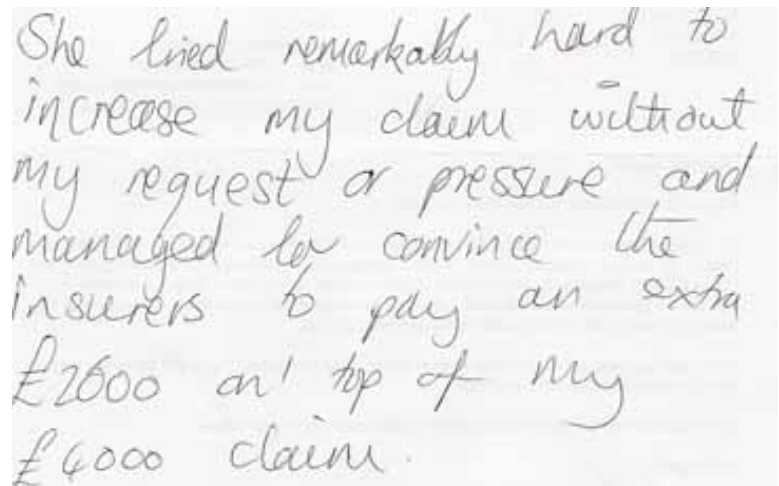 She tried remarkably hard to
increase my claim without
my request or pressure and
managed to convince the
insurers to pay an extra
£2600 on' top of my
£4000 claim.